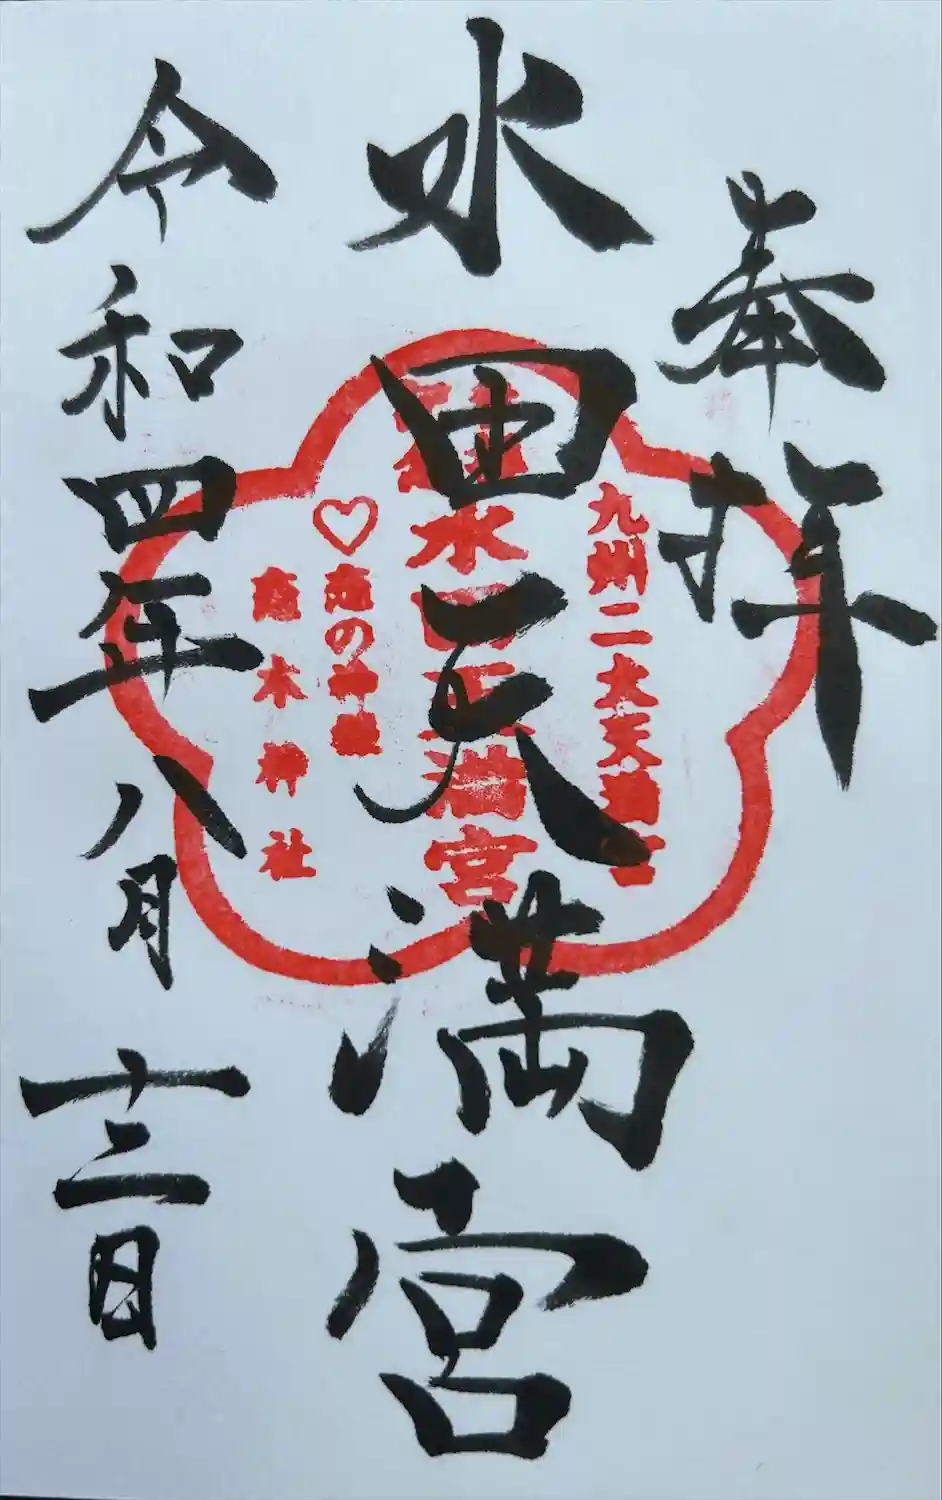 奉拝
九州二大天満宮
水田天満宮
水田天満宮
♡恋の神様
恋木神社
令和四年八月十二日